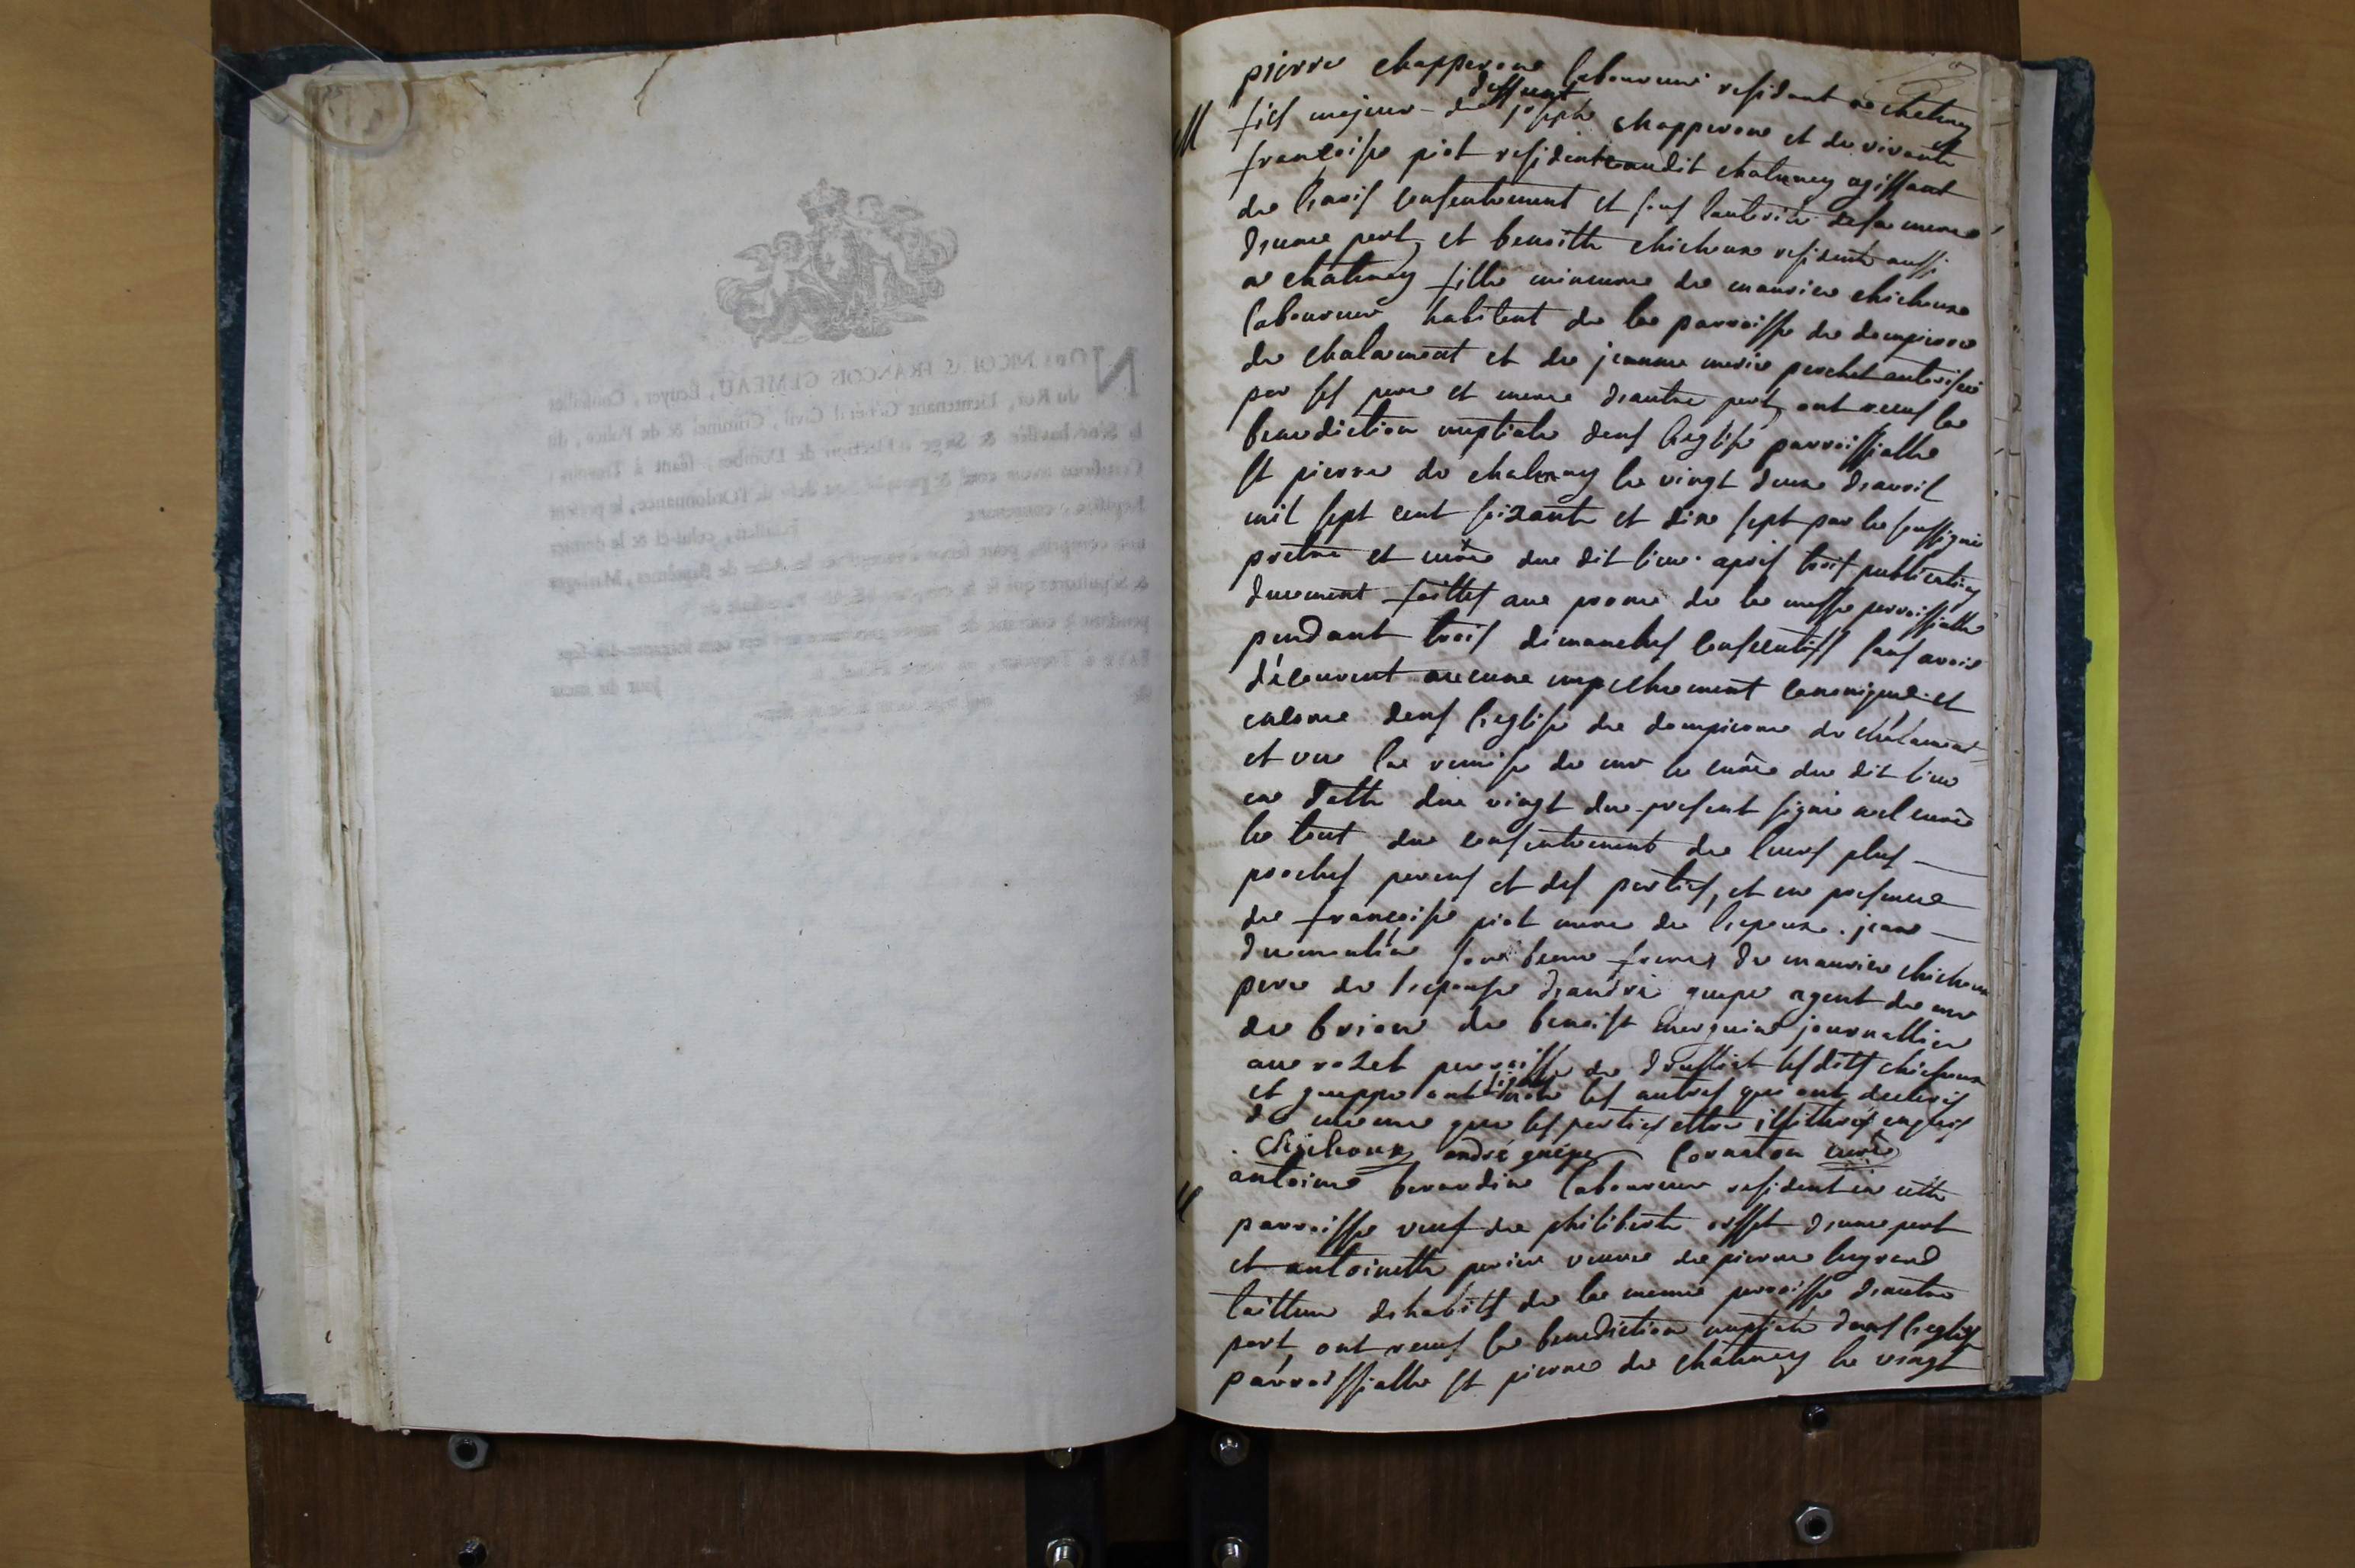 pierre chapperon laboureur residant a chatenay
fils majeur de deffunt joseph chapperon et de vivante
françoise piot residente audit chatenay agissant
de l'avis consentement et sous l'autorité de sa mere
d'une part, et benoitte chicheux residente aussi
a chatenay fille mineure de maurice chicheux
laboureur habitant de la parroisse de dompierre
de chalamont et de jeanne marie perchet autorisée
par ses pere et mere d'autre part, ont reçus la
benediction nuptiale dans l'eglise parroissialle
st pierre de chatenay le vingt deux d'avril
mil sept cent soixante et dix sept par le soussigné
pretre et curé du dit lieu apres trois publications
duement faittes au prone de la messe parroissialle
pendant trois dimanches consecutifs sans avoir
découvert aucune empechement canonique et
encore dans l'eglise de dompierre de chalamont
et vu la remise de mr le curé du dit lieu
en datte du vingt du present signé curé
le tout du consentement de leurs plus
proches parens et des parties, et en presence
de françoise piot mere de l'epoux. jean
dumoulin son beau frere de maurice chicheux
pere de l'epouse d'andré guepe agent de mr
de brion de benoist journallier
au rozet parroisse de les dits chicheux
et gueppe ont signé les autres que ont declaré
de meme que les parties etre illitterés enquis
chicheux andré guépe Cornaton curé
antoine berardin laboureur resident en cette
parroisse veuf de philiberte d'une part
et antoinette perier veuve de pierre legrand
tailleur d'habits de la meme parroisse d'autre
part, ont reçus la benediction nuptiale dans l'eglise
parroissialle st pierre de chatenay le vingt
NOUS NICOLAS FRANCOIS GEMEAU, Ecuyer, Conseiller
du Roi, Lieutenant Général Civil, Criminel & de Police, du